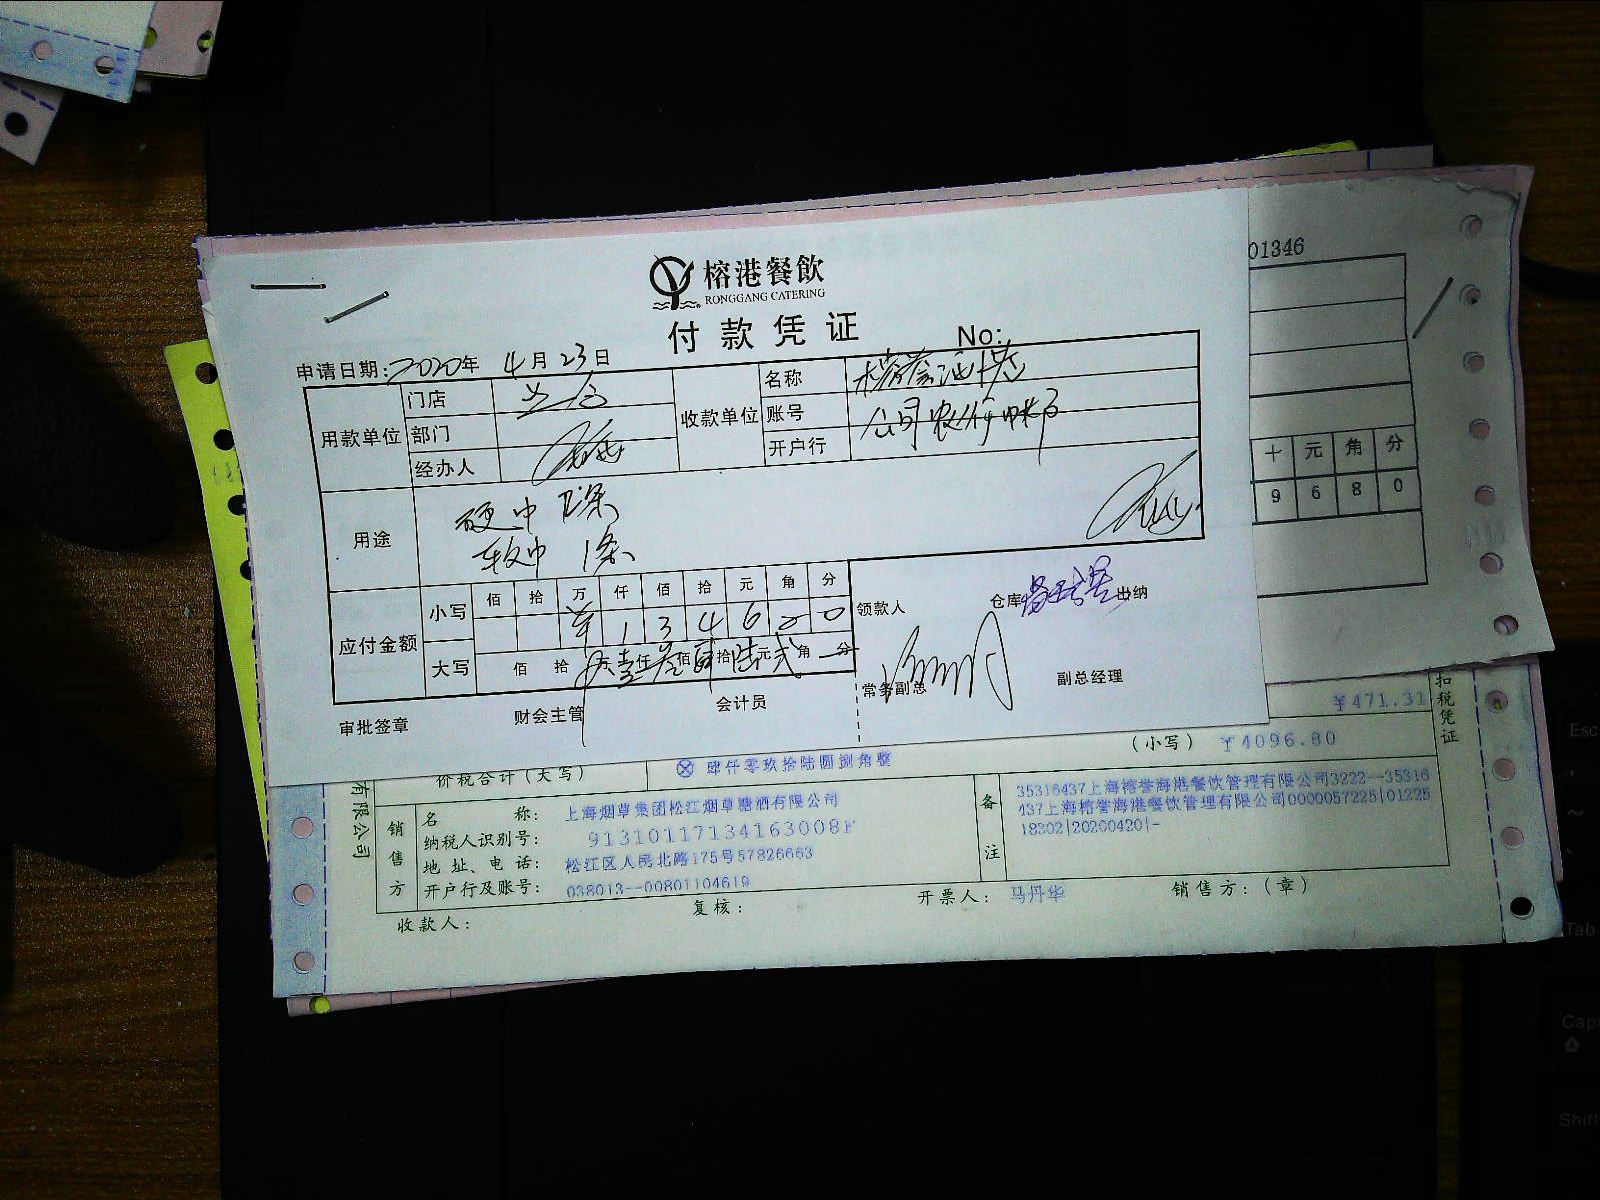 榕港餐飲
RONGGANG CATERING
付款凭证
No:
01346
申请日期:2020年 4月23日
用款单位
门店
部门
经办人
收款单位
名称
账号 公司农行
开户行
用途
硬中
软中 1条
十 元 角 分
9 6 8 0
应付金额
小写
佰 拾 万 仟 佰 拾 元 角 分
1 3 4 6 2 0
大写
佰 拾 万 壹仟 叁佰 肆拾 陆元 贰角 分
领款人
仓库
出纳
常务副总
副总经理
审批签章
财会主管
会计员
扣税凭证
¥471.31
价税合计(大写)
⊗ 肆仟零玖拾陆圆捌角整
(小写) ¥4096.80
有限公司
销售方
名 称: 上海烟草集团松江烟草糖酒有限公司
纳税人识别号: 91310117134163008F
地址、电话: 松江区人民北路175号57826663
开户行及账号: 038013--00801104619
备注
35316437上海榕誉海港餐饮管理有限公司3222--35316
437上海榕誉海港餐饮管理有限公司0000057225|01225
18302|20200420|-
收款人:
复核:
开票人: 马丹华
销售方:(章)
Esc
Tab
Caps
Shift